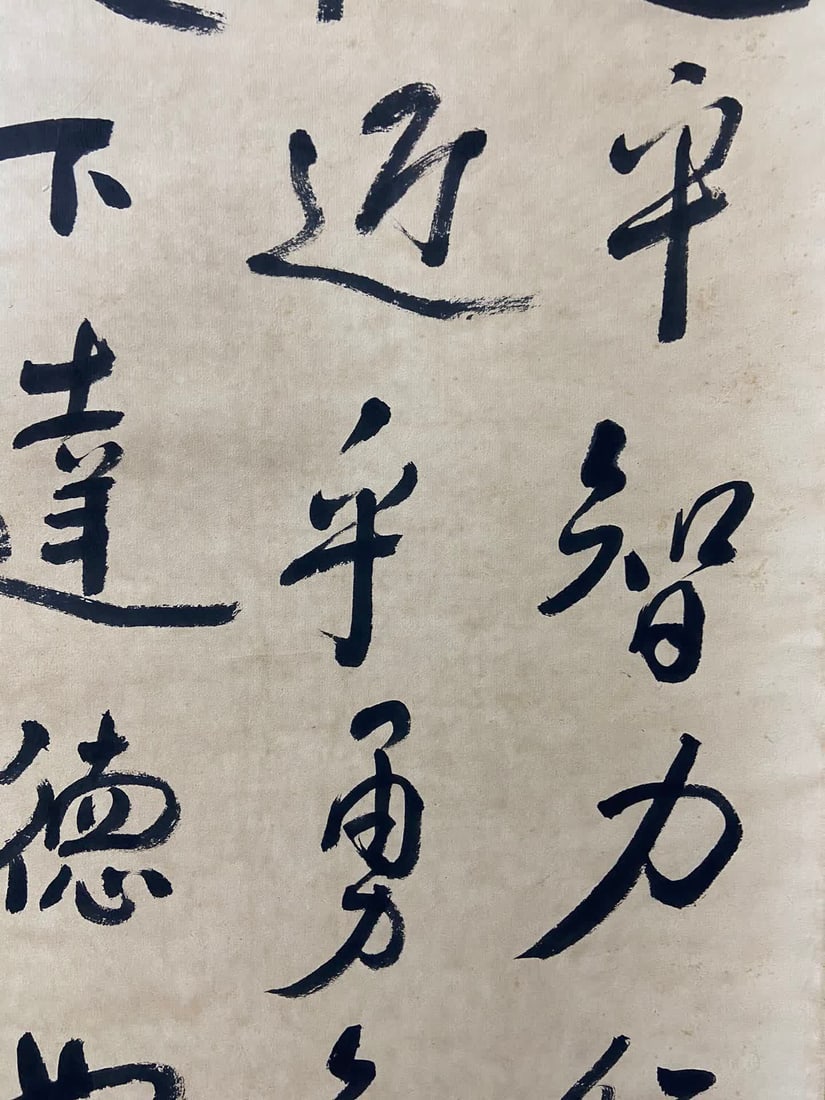 乎智力
近乎勇
下達德